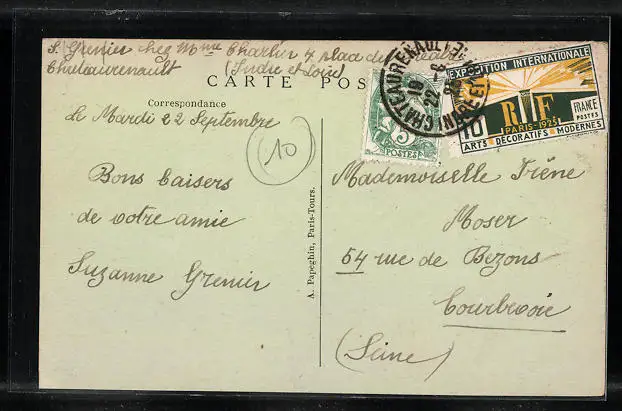 S. Grenier chez Mme Charlin 4 place de
Chateaurenault (Indre et Loire)
CARTE POS
Correspondance
Le Mardi 22 Septembre
10
Bons baisers
de votre amie
Suzanne Grenier
A. Papeghin, Paris-Tours.
CHATEAURENAULT
INDRE ET
19
22-9
25
5
POSTES
EXPOSITION INTERNATIONALE
RF
10
PARIS-1925
FRANCE
POSTES
ARTS DÉCORATIFS MODERNES
Mademoiselle Irène
Moser
54 rue de Bezons
Courbevoie
(Seine)